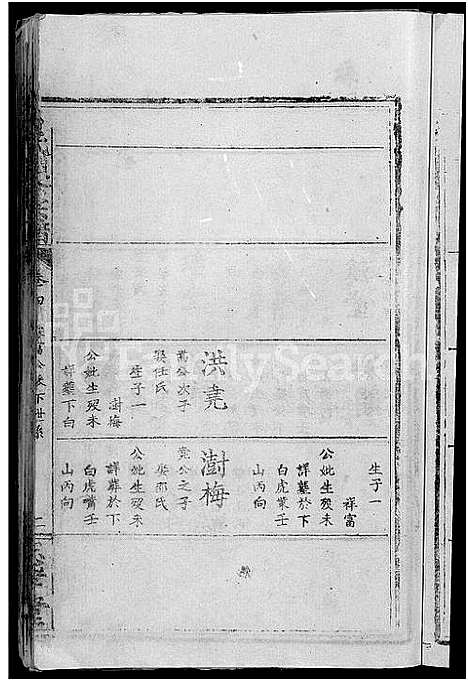 洪堯
萬公次子
娶任氏
生子一
澍梅
公妣生歿未
詳塟下白
生子一
祥富
公妣生歿未
詳塟於下
白虎業壬
山丙向
澍梅
堯公之子
娶邵氏
公妣生歿未
詳葬於下
白虎嘴壬
山丙向
卷四
公派下世系
FamilySearch